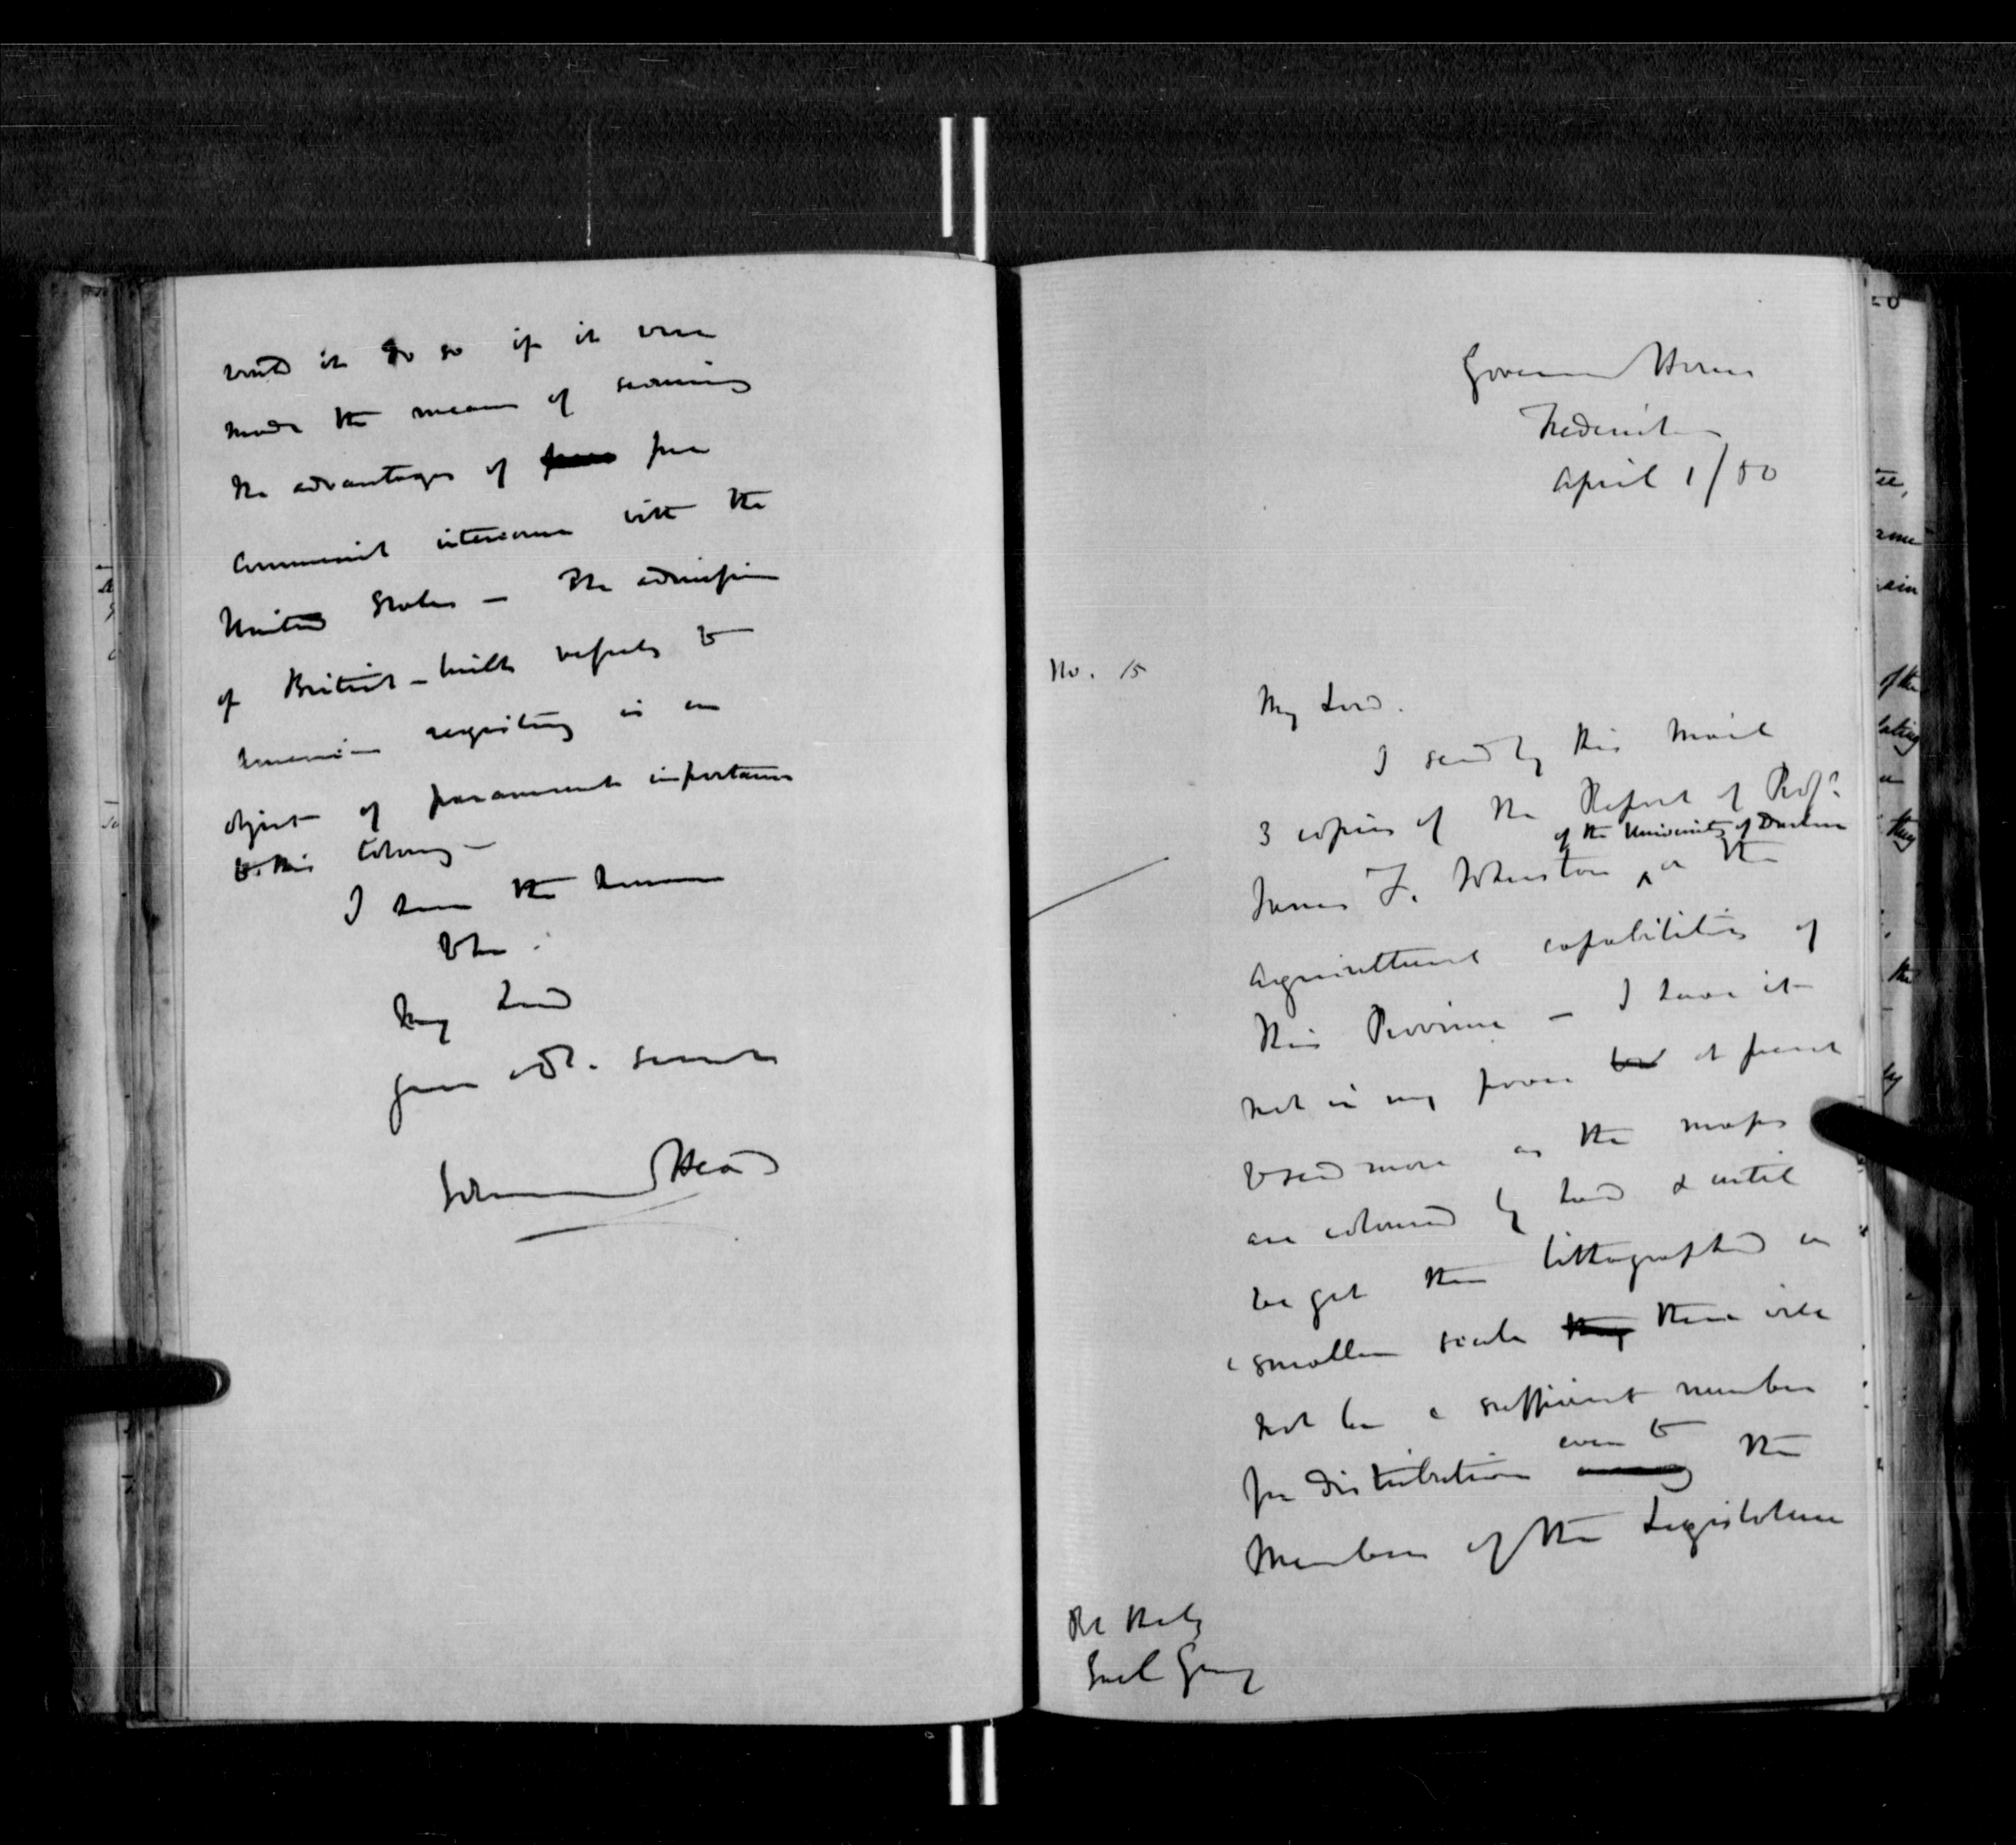 would it do so if it were
made the means of securing
the advantages of free
commercial intercourse with the
United States – The admission
of British-built vessels to
American registry is an
object of paramount importance
to this Colony –
I have the honour
to be
My Lord
your obt. servant
Edmund Head
Government House
Fredericton
April 1/50
No. 15
My Lord.
I send by this Mail
3 copies of the Report of Profr.
of the University of Durham
James F. W. Johnston on the
Agricultural capabilities of
this Province – I have it
not in my power at present
to send more as the maps
are coloured by hand & until
we get them lithographed on
a smaller scale there will
not be a sufficient number
even to
for distribution the
Members of the Legislature
The Rt Hon
Earl Grey